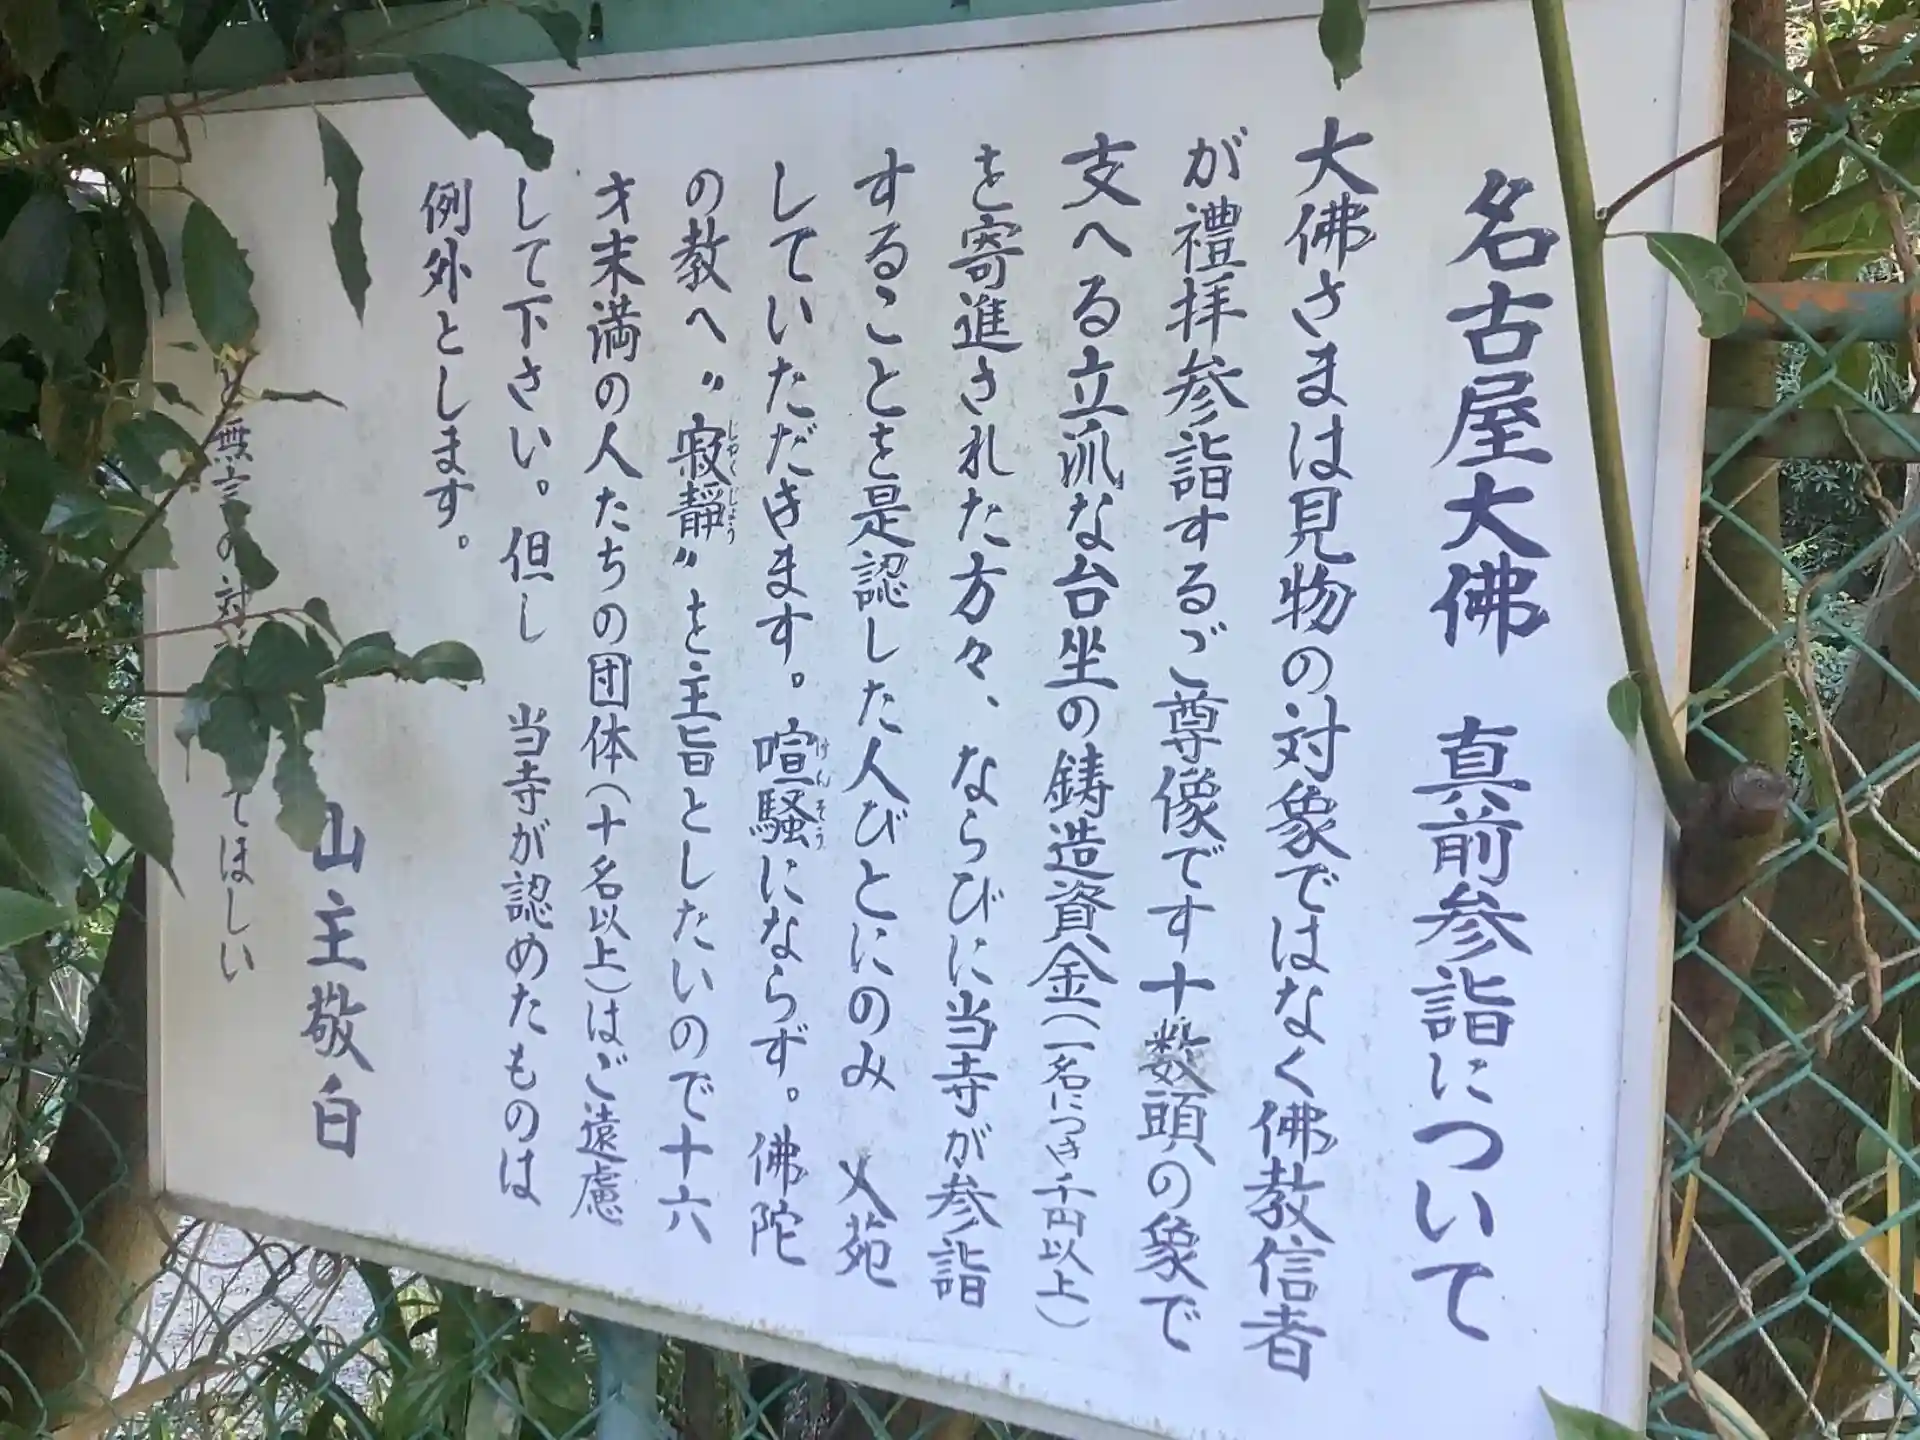 名古屋大佛　真前参詣について
大佛さまは見物の対象ではなく佛教信者
が禮拝参詣するご尊像です十数頭の象で
支へる立派な台坐の鋳造資金（一名につき千円以上）
を寄進された方々、ならびに当寺が参詣
することを是認した人びとにのみ　入苑
していただきます。喧騒にならず。佛陀
けんそう
の教へ〝寂靜〟を主旨としたいので十六
じゃくじょう
才末満の人たちの団体（十名以上）はご遠慮
して下さい。但し　当寺が認めたものは
例外とします。
山主敬白
と無言の対
てほしい